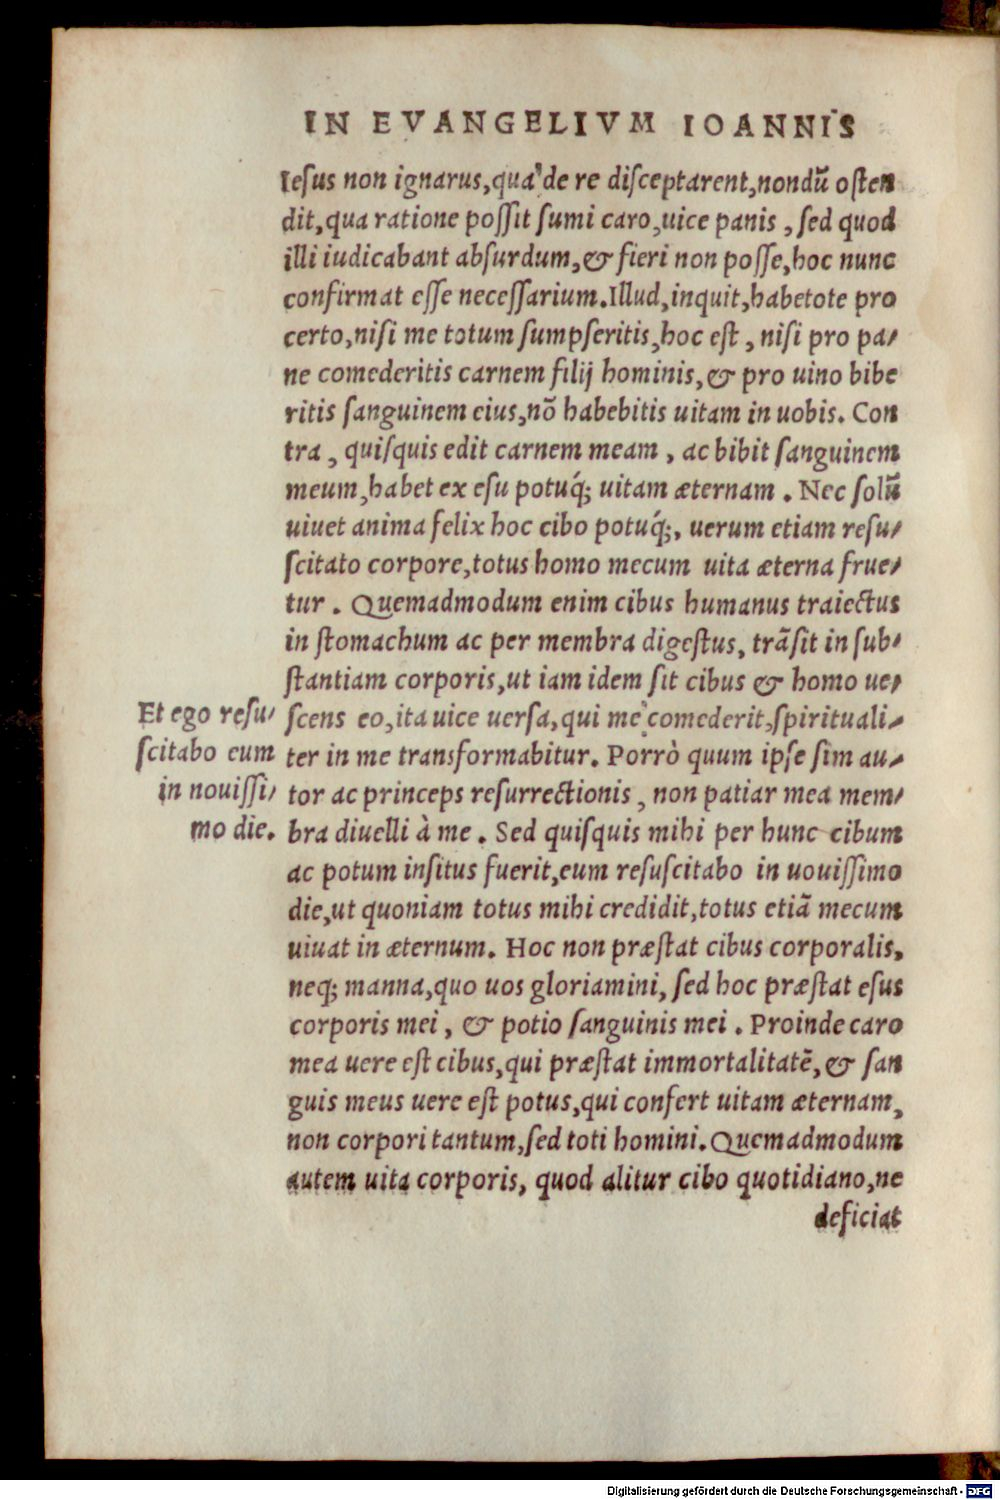 IN EVANGELIVM IOANNIS
Iesus non ignarus, qua de re disceptarent, nondũ osten
dit, qua ratione possit sumi caro, uice panis, sed quod
illi iudicabant absurdum, & fieri non posse, hoc nunc
confirmat esse necessarium. Illud, inquit, habetote pro
certo, nisi me totum sumpseritis, hoc est, nisi pro pa-
ne comederitis carnem filij hominis, & pro uino bibe
ritis sanguinem eius, nõ habebitis uitam in uobis. Con
tra, quisquis edit carnem meam, ac bibit sanguinem
meum, habet ex esu potuq́; uitam æternam. Nec solũ
uiuet anima felix hoc cibo potuq́;, uerum etiam resu-
scitato corpore, totus homo mecum uita æterna frue-
tur. Quemadmodum enim cibus humanus traiectus
in stomachum ac per membra digestus, trãsit in sub-
stantiam corporis, ut iam idem sit cibus & homo ue-
scens eo, ita uice uersa, qui me comederit, spirituali-
ter in me transformabitur. Porrò quum ipse sim au-
tor ac princeps resurrectionis, non patiar mea mem-
bra diuelli à me. Sed quisquis mihi per hunc cibum
ac potum insitus fuerit, eum resuscitabo in uouissimo
die, ut quoniam totus mihi credidit, totus etiã mecum
uiuat in æternum. Hoc non præstat cibus corporalis,
neq; manna, quo uos gloriamini, sed hoc præstat esus
corporis mei, & potio sanguinis mei. Proinde caro
mea uere est cibus, qui præstat immortalitatẽ, & san
guis meus uere est potus, qui confert uitam æternam,
non corpori tantum, sed toti homini. Quemadmodum
autem uita corporis, quod alitur cibo quotidiano, ne
deficiat
Et ego resu-
scitabo eum
in nouissi-
mo die.
Digitalisierung gefördert durch die Deutsche Forschungsgemeinschaft - DFG